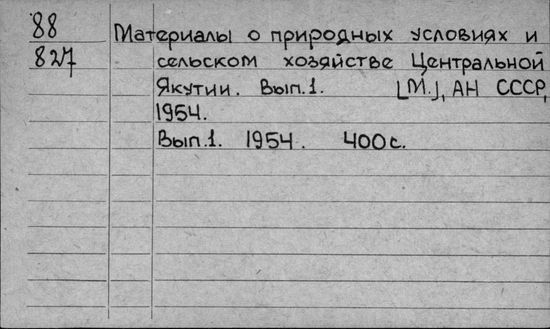 88 Материалы о природных условиях и
827 сельском хозяйстве Центральной
Якутии. Вып.1. [М.], АН СССР,
1954.
Вып.1. 1954. 400 с.